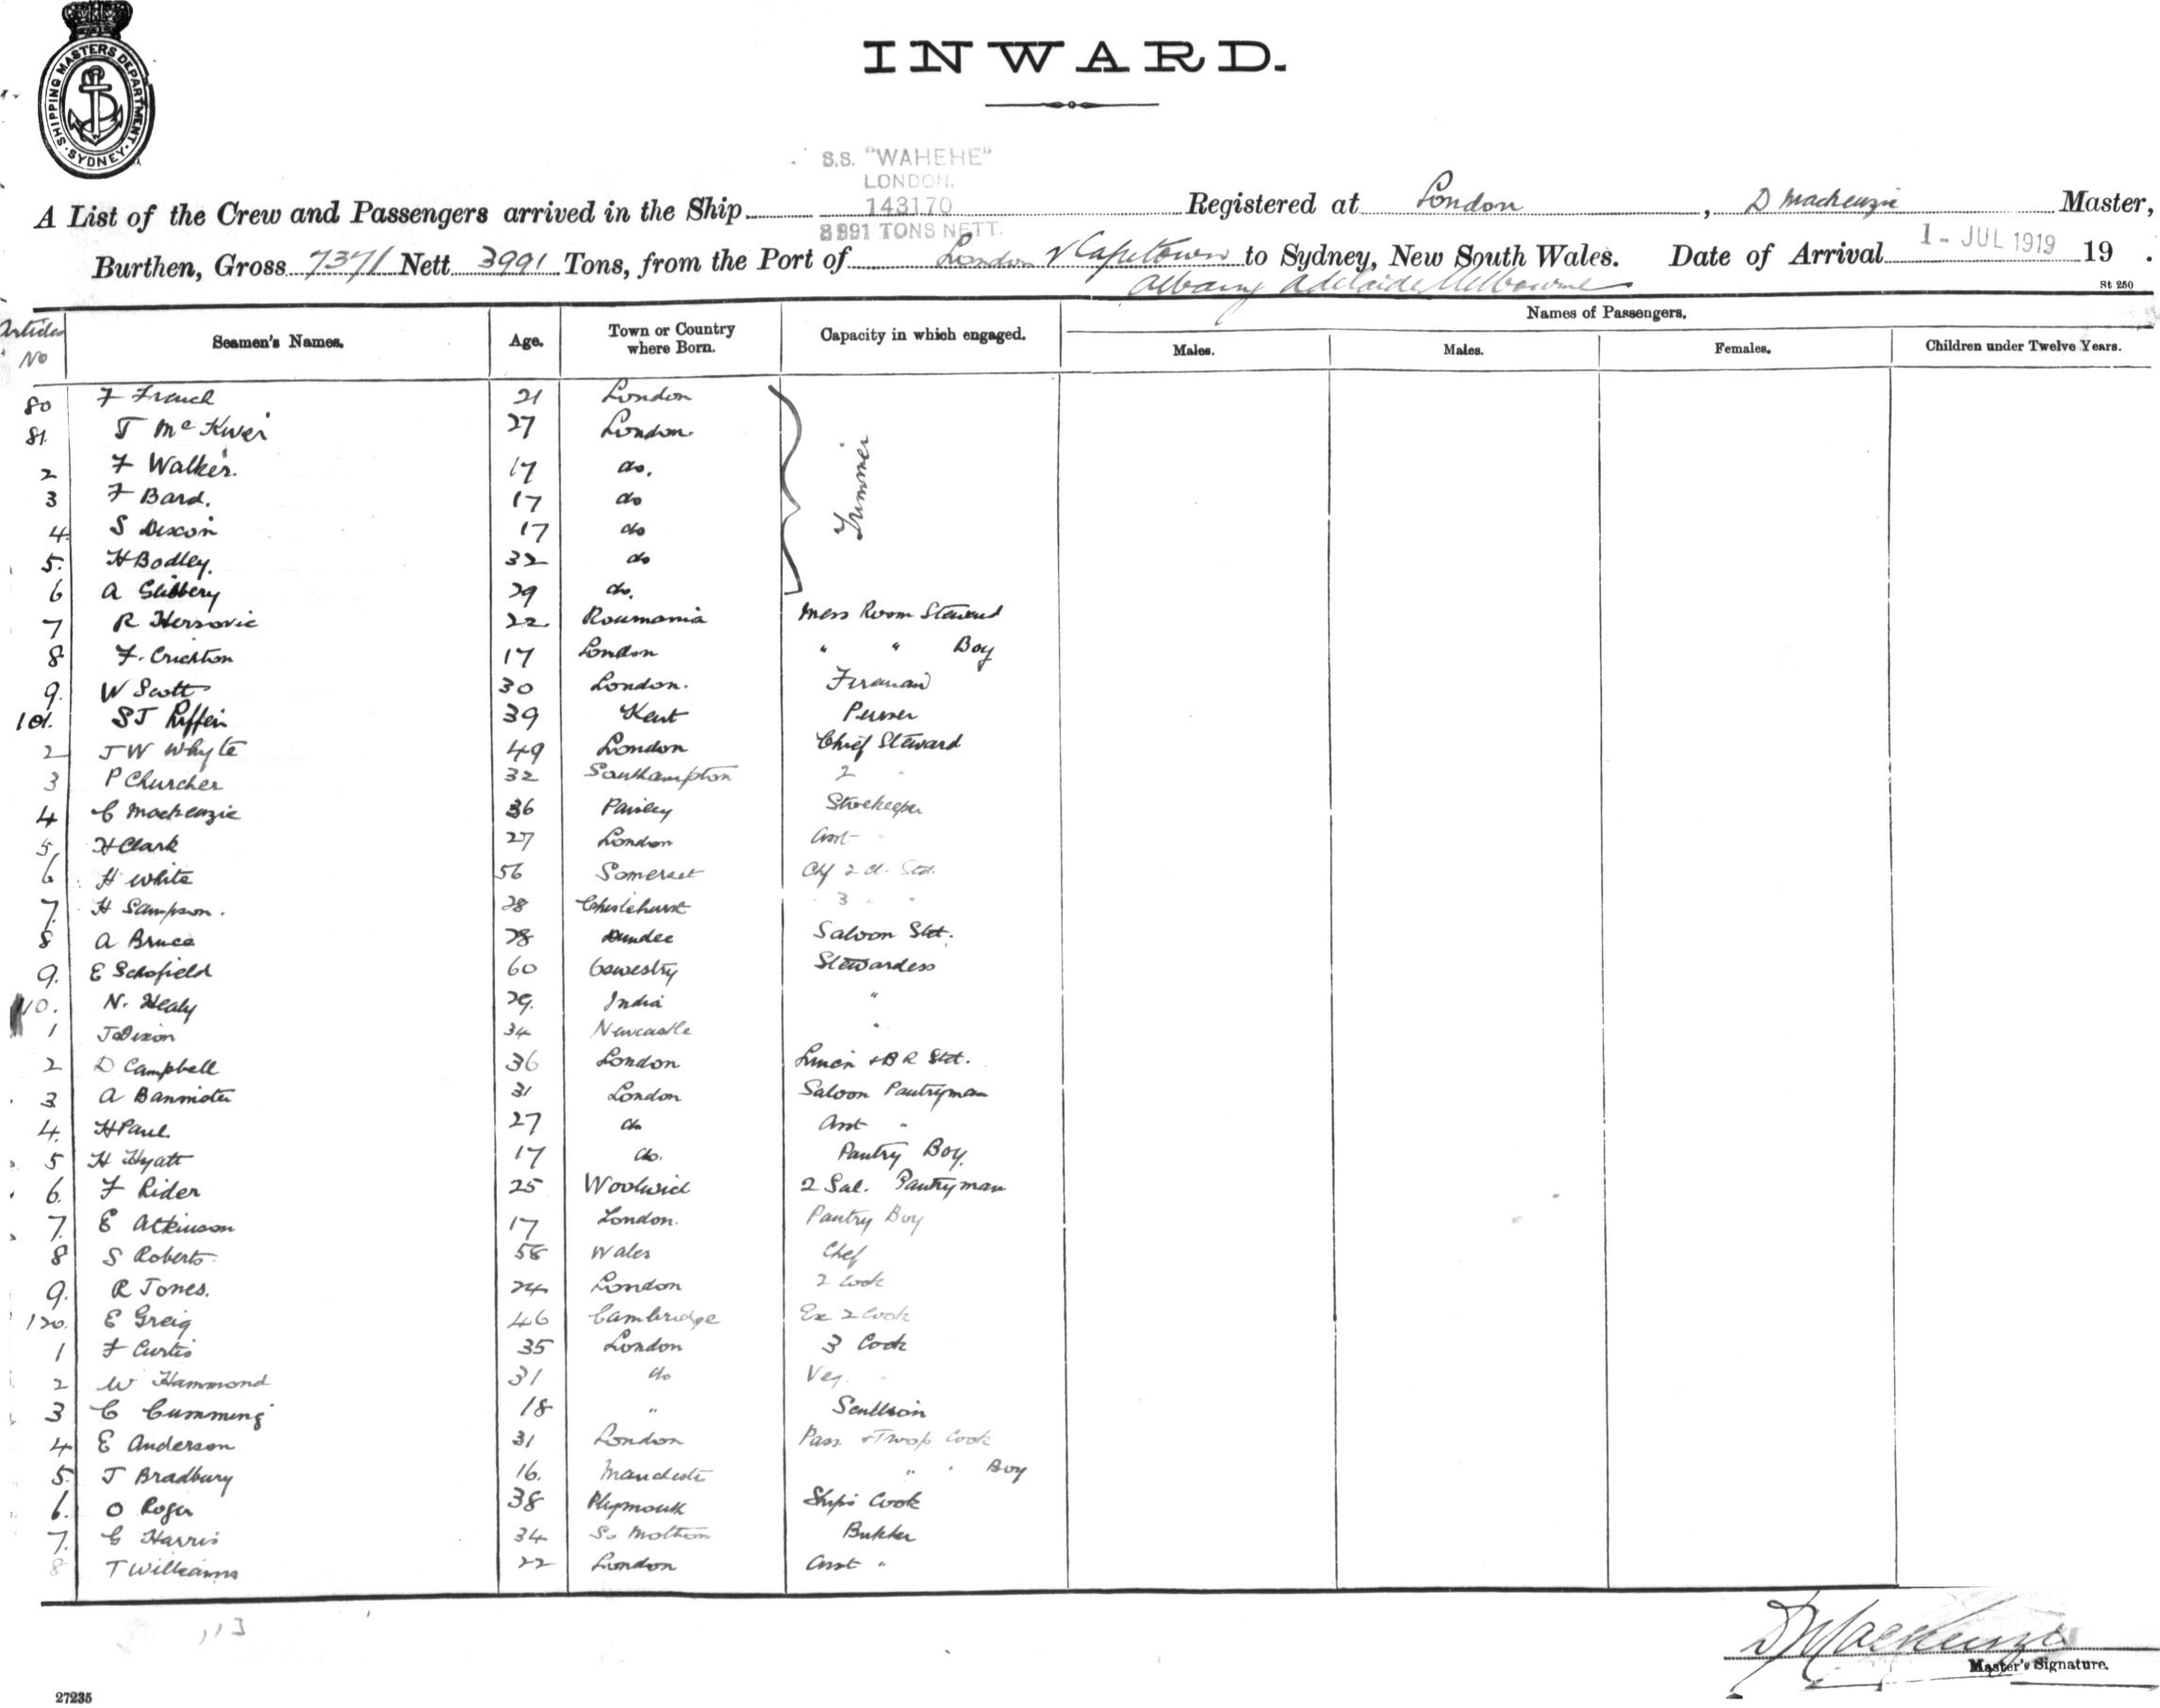 SHIPPING MASTERS DEPARTMENT.
SYDNEY.
INWARD.
S.S. "WAHEHE"
LONDON.
143170
3991 TONS NETT.
A List of the Crew and Passengers arrived in the Ship Registered at London, D Mackenzie Master,
Burthen, Gross 7371 Nett 3991 Tons, from the Port of London & Capetown to Sydney, New South Wales. Date of Arrival 1 - JUL 1919 19 .
Albany Adelaide Melbourne
St 250
Articles No Seamen's Names. Age. Town or Country where Born. Capacity in which engaged. Names of Passengers.
Males. Males. Females. Children under Twelve Years.
80 F French 21 London
81. T McKwei 27 London
2 F Walker. 17 do.
3 F Bard. 17 do
Trimmer
4. S Dixon 17 do
5. H Bodley. 32 do
6 A 29 do.
7 R Hersovic 22 Roumania Mess Room Steward
8 F. Crichton 17 London " " Boy
9. W Scott 30 London. Fireman
101. S J 39 Kent Purser
2 J W Whyte 49 London Chief Steward
3 P Churcher 32 Southampton 2 "
4 C Mackenzie 36 Paisley Storekeeper
5 H Clark 27 London Asst "
6 H White 56 Somerset Chf 2 Cl. Std.
7. H Sampson. 28 Chislehurst 3 " "
8 A Bruce 28 Dundee Saloon Std.
9. E Schofield 60 Oswestry Stewardess
110. N. Healy 29. India "
1 J Dixon 34 Newcastle "
2 D Campbell 36 London Linen & B R Std.
3 A Bannister 31 London Saloon Pantryman
4. H Paul. 27 do Asst "
5 H Hyatt 17 do. Pantry Boy.
6. F Rider 25 Woolwich 2 Sal. Pantryman
7. E Atkinson 17 London. Pantry Boy
8 S Roberts 58 Wales Chef
9. R Jones. 24 London 2 Cook
120. E Greig 46 Cambridge Ex 2 Cook
1 F Curtis 35 London 3 Cook
2 W Hammond 31 do Veg. "
3 C Cumming 18 " Scullion
4 E Anderson 31 London Pass & Troop Cook
5. J Bradbury 16. Manchester " " Boy
6. O Roger 38 Plymouth Ships Cook
7. G Harris 34 So Molton Butcher
8 T Williams 22 London Asst "
113
D Mackenzie
Master's Signature.
27235